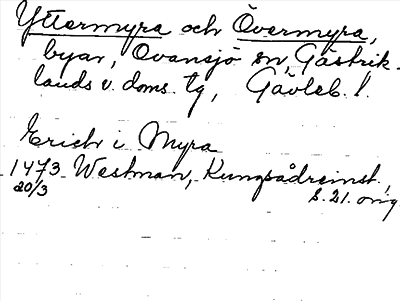 Yttermyra och Övermyra,
byar, Ovansjö sn, Gästrik-
lands v. doms. tg, Gävleb. l.
Erich i Myra
1473 Westman, Kungsådreinst.,
20/3 s. 21. orig.